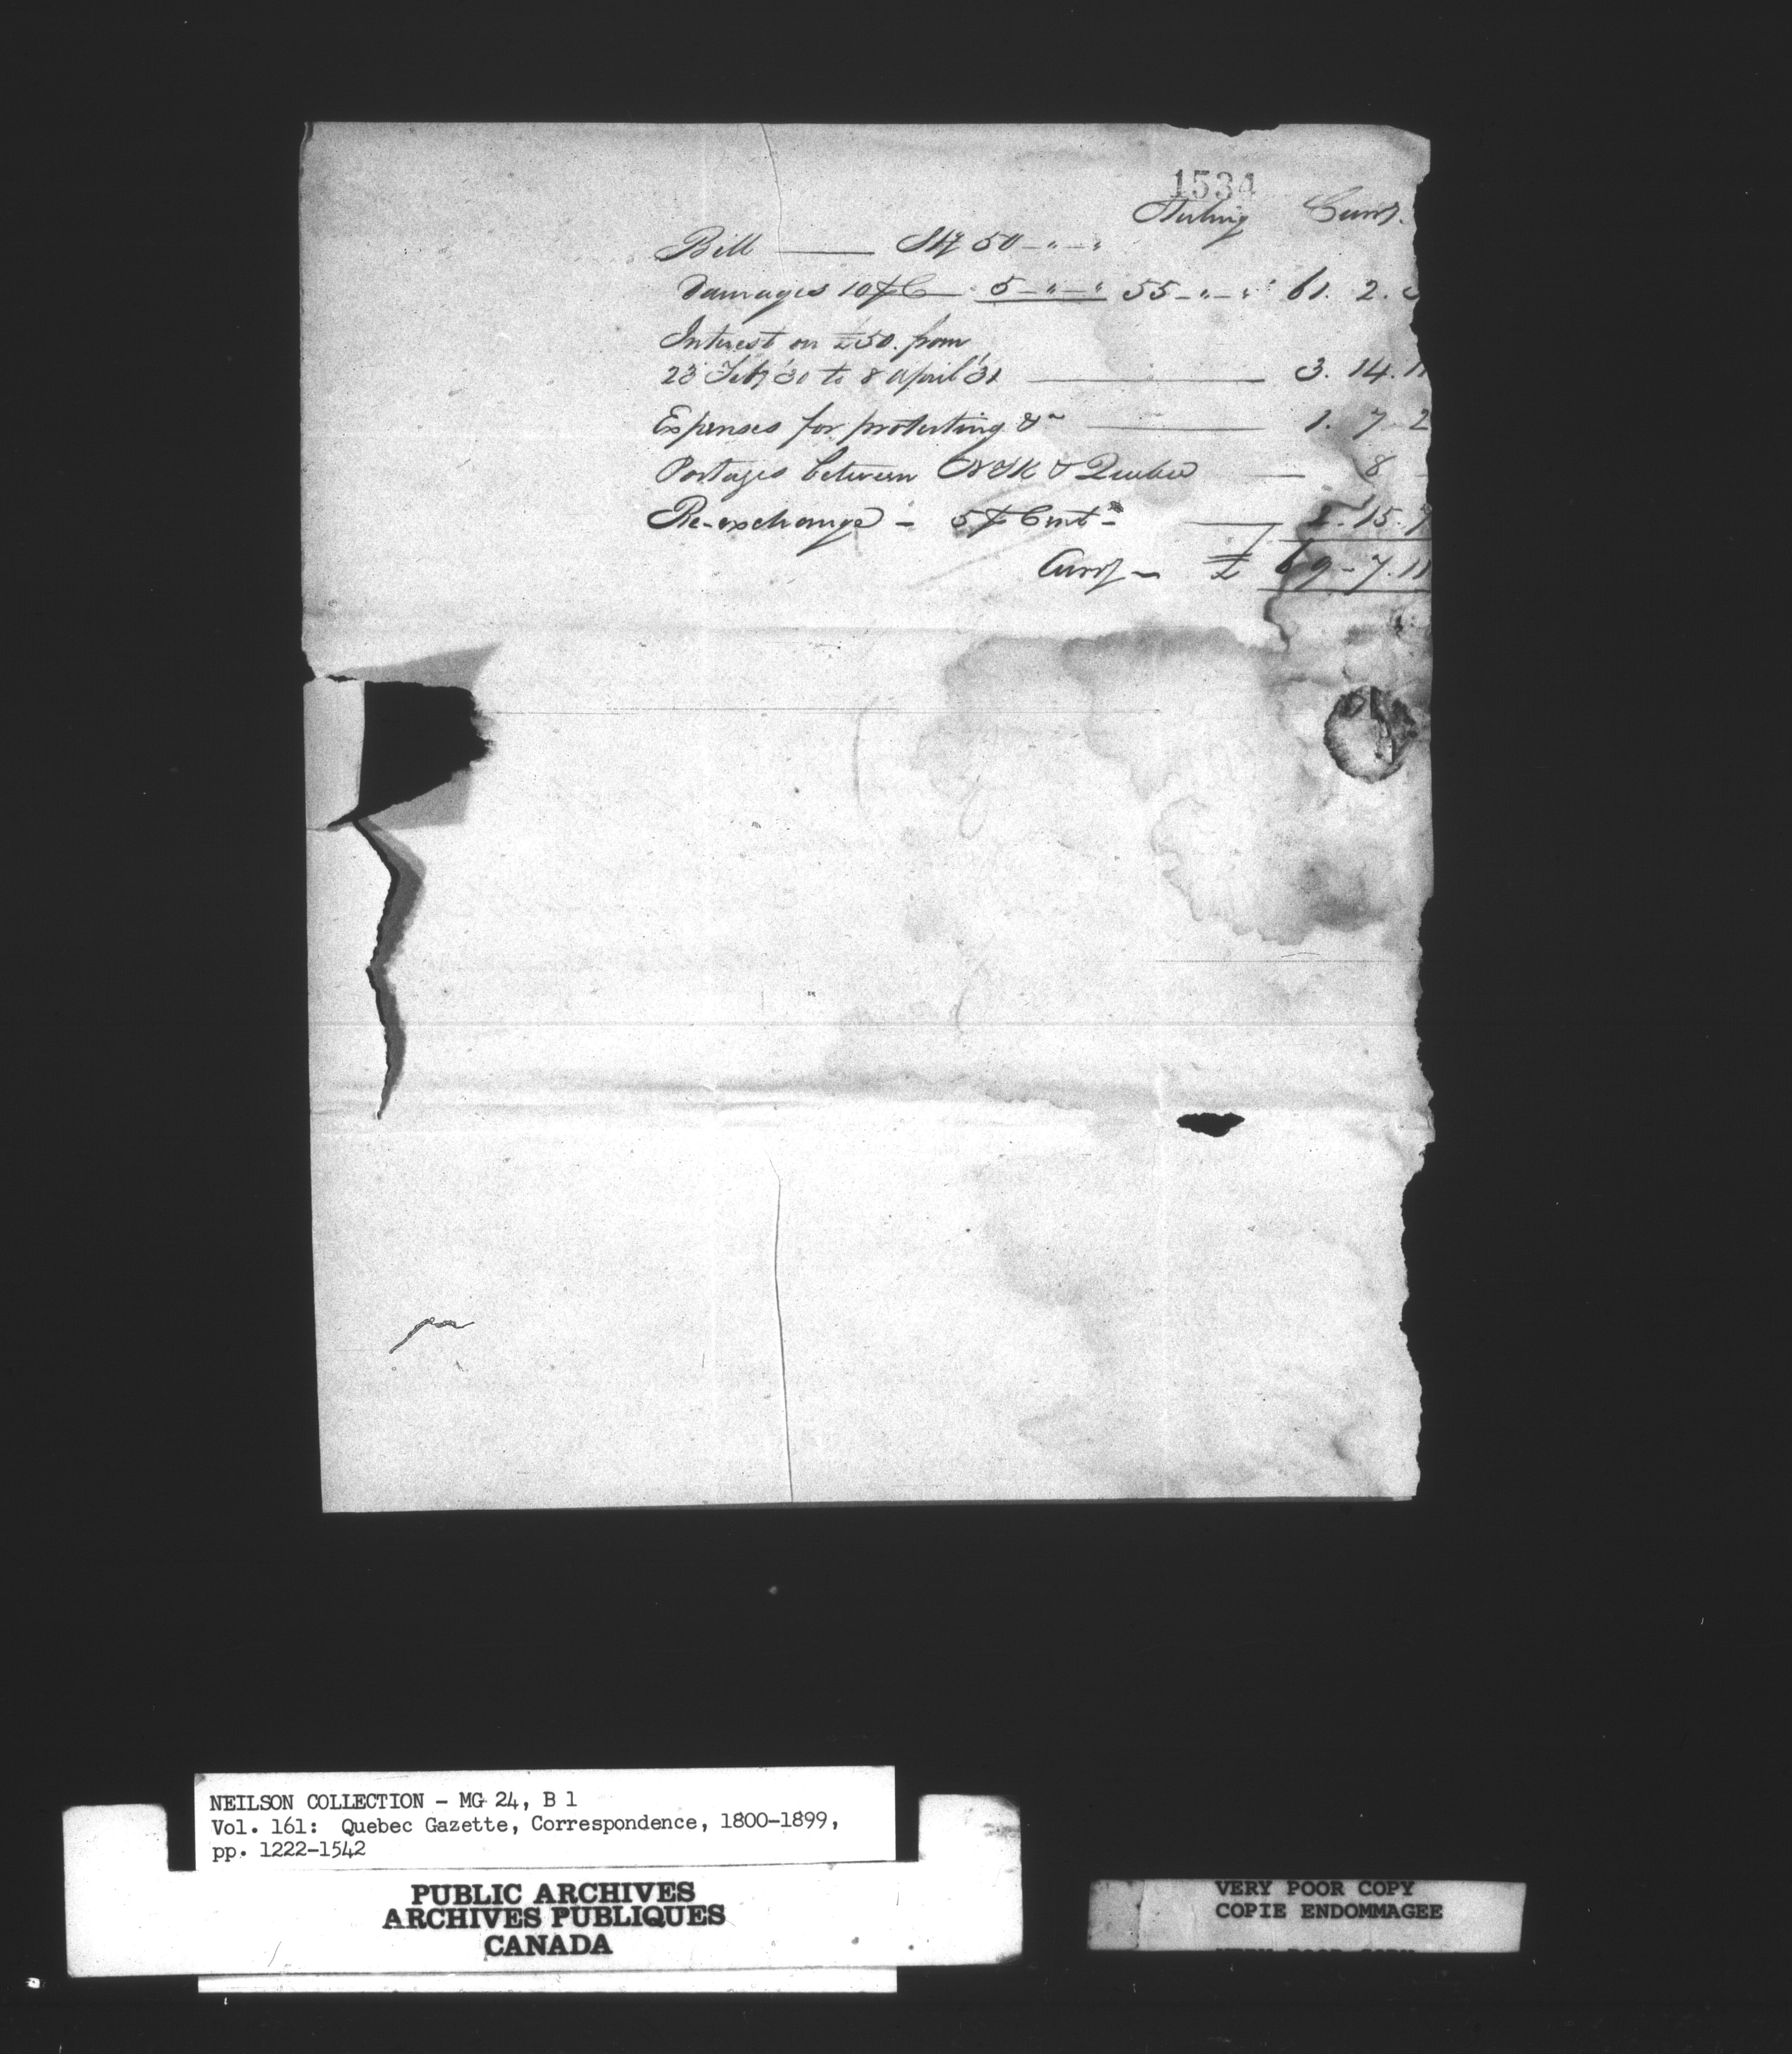 1534
Sterling Curry.
Bill —— Stg 50 -"-"
Damages 10 ⅌ C 5-"-" 55-"-" 61. 2.
Interest on £50. from
23 Feby '30 to 8 April '31 —— 3. 14. 11
Expenses for protesting &c —— 1. 7 2
Postages between & Quebec — 8 -
Re-exchange - 5 ⅌ Cent — 2. 15. 7
Curry — £ 69-7.11
pa
NEILSON COLLECTION - MG 24, B 1
Vol. 161: Quebec Gazette, Correspondence, 1800-1899,
pp. 1222-1542
PUBLIC ARCHIVES
ARCHIVES PUBLIQUES
CANADA
VERY POOR COPY
COPIE ENDOMMAGEE
VERY POOR COPY